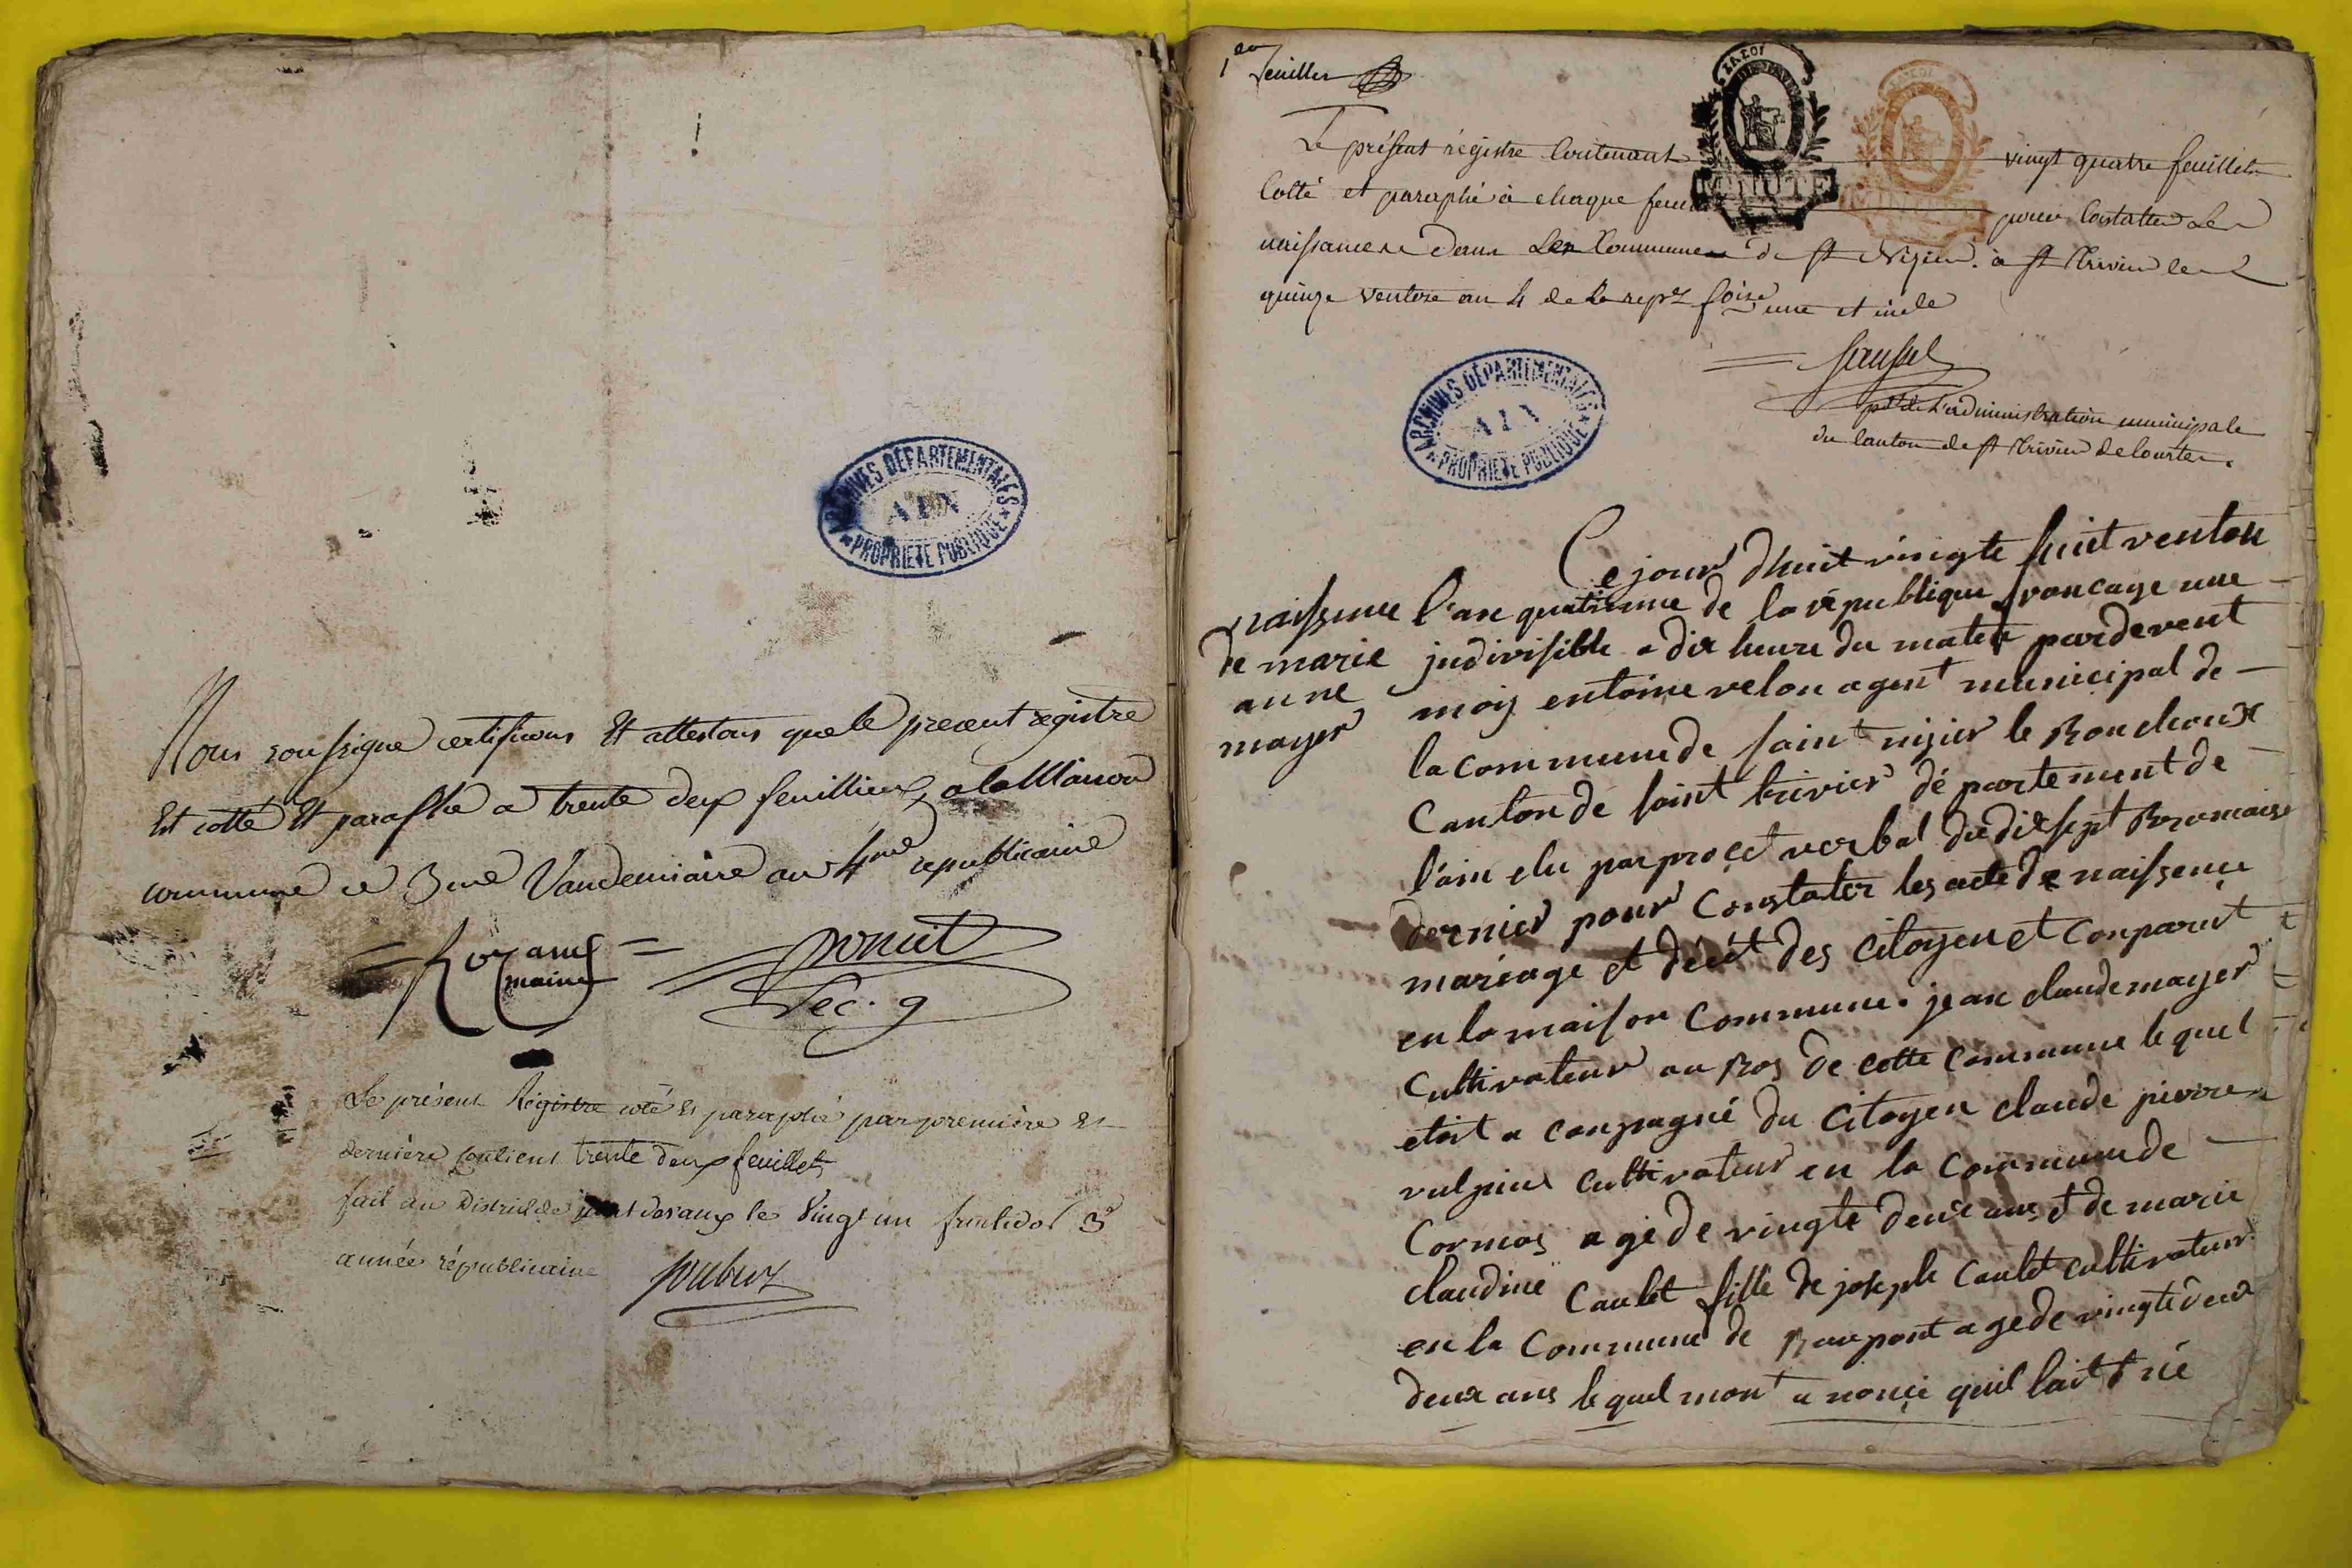 Nous soussigne certifions Et attestons que le present registre
Est cotté Et paraphé a trente deux feuilliets, a la Maison
commune ce 3me Vandemiaire an 4me republicaine
maire
poncet
Sec. g
Le présent Registre coté et paraphé par premiere et
derniere contient trente deux feuillets
fait au District de pont devaux le vingt un fructidor 3e
année républicaine
ARCHIVES DÉPARTEMENTALES
AIN
PROPRIÉTÉ PUBLIQUE
1er feuillet
LA LOI
MINUTE
MINUTE
Le présent régistre Contenant vingt quatre feuillets
Cotté et paraphé à chaque pour Constatter les
naissances dans La Commune de st Nizier. à st Trivier le
quinze ventose an 4 de la repe. foise une et indle
pdt de l'administration municipale
du Canton de st Trivier de Courtes.
ARCHIVES DÉPARTEMENTALES
AIN
PROPRIÉTÉ PUBLIQUE
naissence
de marie
anne
mayer
Ce jour d'huit vingte huit ventose
l'an quatrieme de la république francaye une
jndivisible a dix heure du matin pardevent
moy entoine velon agent municipal de
la commune de saint nizier le Bouchoux
Canton de saint trivier département de
l'ain elu par procet verbal du dixsept Bromaire
dernier pour Constater les acte de naissence
mariage et décét des Citoyen et Conparut
en la maison Commune. jean claude mayer
Cultivateur au Bos de cette Commune le quel
etoit a conpagné du Citoyen claude pierre
vulpin Cultivateur en la Commune de
Cormos agé de vingte deux ans et de marie
claudine Caulet fille de joseph Caulet cultivateur
en la Commune de Baupont agé de vingte
deux ans le quel mont a nonçé quil lait né